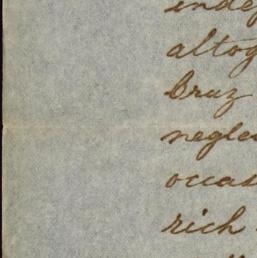 indep
altog
Cruz
neglec
occas
rich